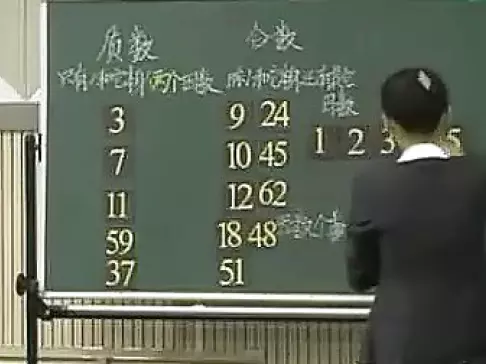 质数 合数
只有1和它本身两个因数 除1和它本身还有其它
因数
3 9 24 1 2 3 5
7 10 45
11 12 62
59 18 48 因数个数
37 51